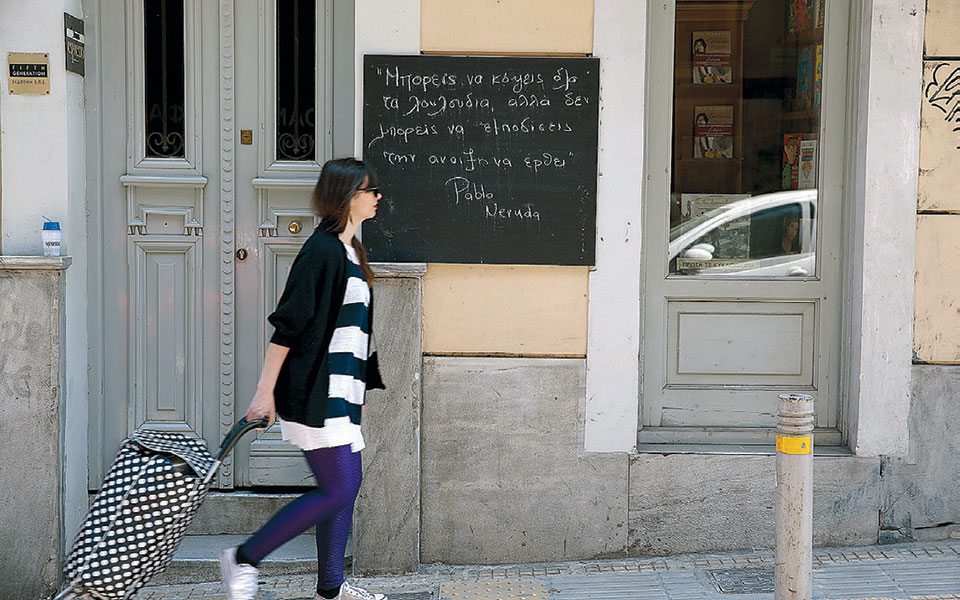 FIFTH
GENERATION
ΕΚΔΟΤΙΚΗ Ε.Π.Ε.
"Μπορείς να κόψεις όλα
τα λουλούδια, αλλά δεν
μπορείς να εμποδίσεις
την άνοιξη να έρθει"
Pablo
Neruda